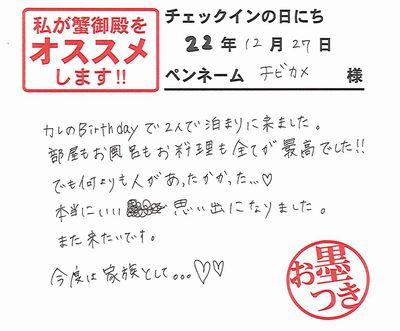 私が蟹御殿を
オススメ
します!!
チェックインの日にち
22年12月27日
ペンネーム チビカメ 様
カレのBirthdayで2人で泊まりに来ました。
部屋もお風呂もお料理も全てが最高でした!!
でも何よりも人があったかかった...♡
本当にいい 思い出になりました。
また来たいです。
今度は家族として...♡♡
お墨つき